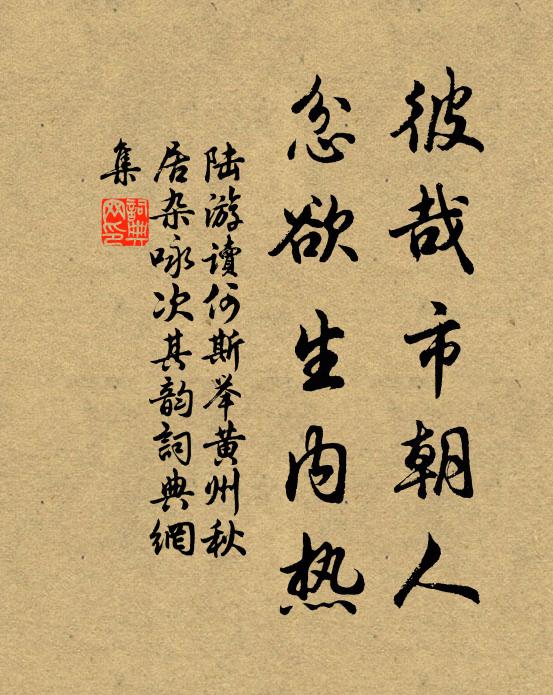 彼哉市朝人
忿欲生内热
陆游读何斯举黄州秋
居杂咏次其韵词典網
集
詞典網印